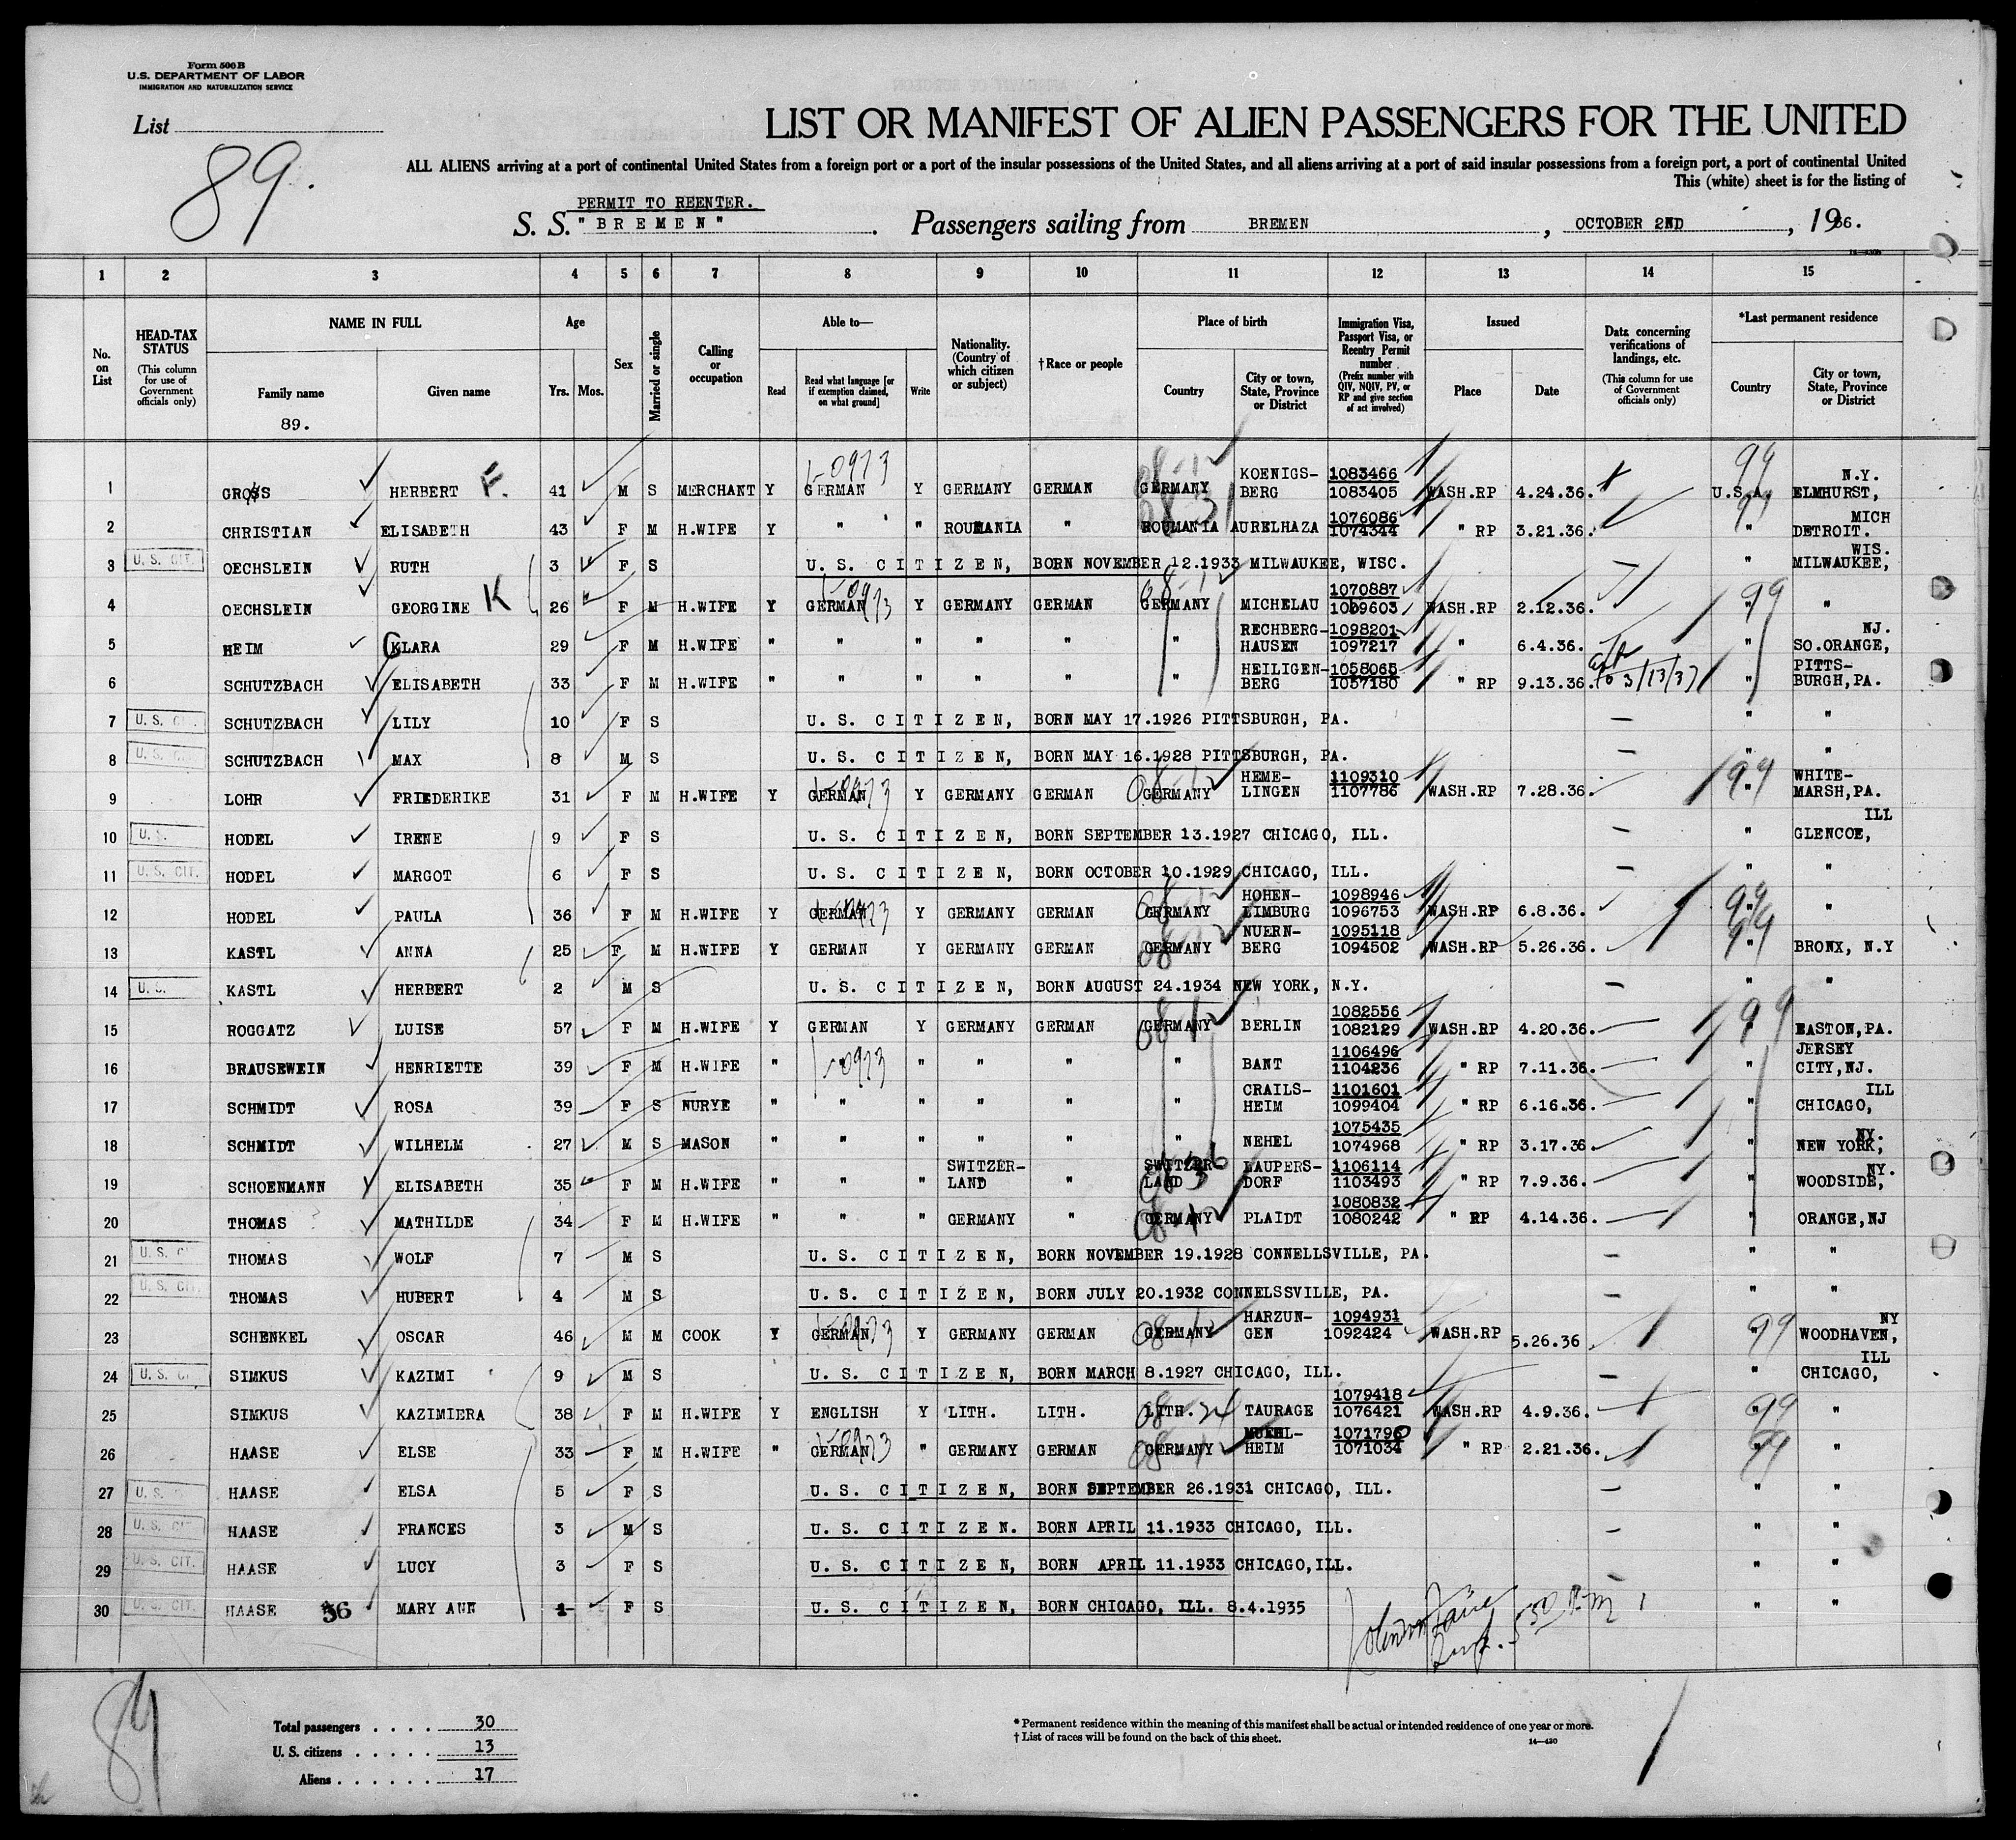 Form 500 B
U.S. DEPARTMENT OF LABOR
IMMIGRATION AND NATURALIZATION SERVICE
List
89.
LIST OR MANIFEST OF ALIEN PASSENGERS FOR THE UNITED
ALL ALIENS arriving at a port of continental United States from a foreign port or a port of the insular possessions of the United States, and all aliens arriving at a port of said insular possessions from a foreign port, a port of continental United
This (white) sheet is for the listing of
PERMIT TO REENTER.
S. S. "BREMEN". Passengers sailing from BREMEN, OCTOBER 2ND, 1936.
1 2 3 4 5 6 7 8 9 10 11 12 13 14 15
No. on List
HEAD-TAX STATUS (This column for use of Government officials only)
NAME IN FULL
Family name
89.
Given name
Age
Yrs. Mos.
Sex
Married or single
Calling or occupation
Able to—
Read
Read what language [or if exemption claimed, on what ground]
Write
Nationality. (Country of which citizen or subject)
† Race or people
Place of birth
Country
City or town, State, Province or District
Immigration Visa, Passport Visa, or Reentry Permit number (Prefix number with QIV, NQIV, PV, or RP and give section of act involved)
Issued
Place
Date
Data concerning verifications of landings, etc. (This column for use of Government officials only)
*Last permanent residence
Country
City or town, State, Province or District
1 GROSS HERBERT F. 41 M S MERCHANT Y GERMAN Y GERMANY GERMAN GERMANY KOENIGS-BERG 1083466 1083405 WASH.RP 4.24.36. U.S.A. ELMHURST, N.Y.
2 CHRISTIAN ELISABETH 43 F M H.WIFE Y " " ROUMANIA " ROUMANIA AURELHAZA 1076086 1074344 " RP 3.21.36. " DETROIT. MICH
3 U.S. CIT. OECHSLEIN RUTH 3 F S U. S. CITIZEN, BORN NOVEMBER 12.1933 MILWAUKEE, WISC. " MILWAUKEE, WIS.
4 OECHSLEIN GEORGINE K 26 F M H.WIFE Y GERMAN Y GERMANY GERMAN GERMANY MICHELAU 1070887 1069603 WASH.RP 2.12.36. " "
5 HEIM KLARA 29 F M H.WIFE " " " " " " RECHBERG-HAUSEN 1098201 1097217 " 6.4.36. " SO.ORANGE, NJ.
6 SCHUTZBACH ELISABETH 33 F M H.WIFE " " " " " " HEILIGEN-BERG 1058065 1057180 " RP 9.13.36. to 3/13/37 " PITTS-BURGH,PA.
7 U.S. CIT. SCHUTZBACH LILY 10 F S U. S. CITIZEN, BORN MAY 17.1926 PITTSBURGH, PA. " "
8 U.S. CIT. SCHUTZBACH MAX 8 M S U. S. CITIZEN, BORN MAY 16.1928 PITTSBURGH, PA. " "
9 LOHR FRIEDERIKE 31 F M H.WIFE Y GERMAN Y GERMANY GERMAN GERMANY HEME-LINGEN 1109310 1107786 WASH.RP 7.28.36. " WHITE-MARSH,PA.
10 U.S. HODEL IRENE 9 F S U. S. CITIZEN, BORN SEPTEMBER 13.1927 CHICAGO, ILL. " GLENCOE, ILL
11 U.S. CIT. HODEL MARGOT 6 F S U. S. CITIZEN, BORN OCTOBER 10.1929 CHICAGO, ILL. " "
12 HODEL PAULA 36 F M H.WIFE Y GERMAN Y GERMANY GERMAN GERMANY HOHEN-LIMBURG 1098946 1096753 WASH.RP 6.8.36. " "
13 KASTL ANNA 25 F M H.WIFE Y GERMAN Y GERMANY GERMAN GERMANY NUERN-BERG 1095118 1094502 WASH.RP 5.26.36. " BRONX, N.Y
14 U.S. KASTL HERBERT 2 M S U. S. CITIZEN, BORN AUGUST 24.1934 NEW YORK, N.Y. " "
15 ROGGATZ LUISE 57 F M H.WIFE Y GERMAN Y GERMANY GERMAN GERMANY BERLIN 1082556 1082129 WASH.RP 4.20.36. " EASTON,PA.
16 BRAUSEWEIN HENRIETTE 39 F M H.WIFE " " " " " " BANT 1106496 1104236 " RP 7.11.36. " JERSEY CITY,NJ.
17 SCHMIDT ROSA 39 F S NURYE " " " " " " CRAILS-HEIM 1101601 1099404 " RP 6.16.36. " CHICAGO, ILL
18 SCHMIDT WILHELM 27 M S MASON " " " " " " NEHEL 1075435 1074968 " RP 3.17.36 " NEW YORK, NY.
19 SCHOENMANN ELISABETH 35 F M H.WIFE " " " SWITZER-LAND " SWITZER LAND LAUPERS-DORF 1106114 1103493 " RP 7.9.36. " WOODSIDE, NY.
20 THOMAS MATHILDE 34 F M H.WIFE " " " GERMANY " GERMANY PLAIDT 1080832 1080242 " RP 4.14.36. " ORANGE,NJ
21 U.S. CIT. THOMAS WOLF 7 M S U. S. CITIZEN, BORN NOVEMBER 19.1928 CONNELLSVILLE, PA. " "
22 U.S. CIT. THOMAS HUBERT 4 M S U. S. CITIZEN, BORN JULY 20.1932 CONNELSSVILLE, PA. " "
23 SCHENKEL OSCAR 46 M M COOK Y GERMAN Y GERMANY GERMAN GERMANY HARZUN-GEN 1094931 1092424 WASH.RP 5.26.36 " WOODHAVEN, NY
24 U.S. CIT. SIMKUS KAZIMI 9 M S U. S. CITIZEN, BORN MARCH 8.1927 CHICAGO, ILL. " CHICAGO, ILL
25 SIMKUS KAZIMIERA 38 F M H.WIFE Y ENGLISH Y LITH. LITH. LITH. TAURAGE 1079418 1076421 WASH.RP 4.9.36. " "
26 HAASE ELSE 33 F M H.WIFE " GERMAN " GERMANY GERMAN GERMANY MUEHL-HEIM 1071796 1071034 " RP 2.21.36. " "
27 U.S. HAASE ELSA 5 F S U. S. CITIZEN, BORN SEPTEMBER 26.1931 CHICAGO, ILL. " "
28 U.S. CIT HAASE FRANCES 3 M S U. S. CITIZEN. BORN APRIL 11.1933 CHICAGO, ILL. " "
29 U.S. CIT. HAASE LUCY 3 F S U. S. CITIZEN, BORN APRIL 11.1933 CHICAGO,ILL. " "
30 U.S. CIT. HAASE 36 MARY ANN 1 F S U. S. CITIZEN, BORN CHICAGO, ILL. 8.4.1935 " "
530 P.M
89
Total passengers . . . . 30
U. S. citizens . . . . . 13
Aliens . . . . . . 17
* Permanent residence within the meaning of this manifest shall be actual or intended residence of one year or more.
† List of races will be found on the back of this sheet.
14—420